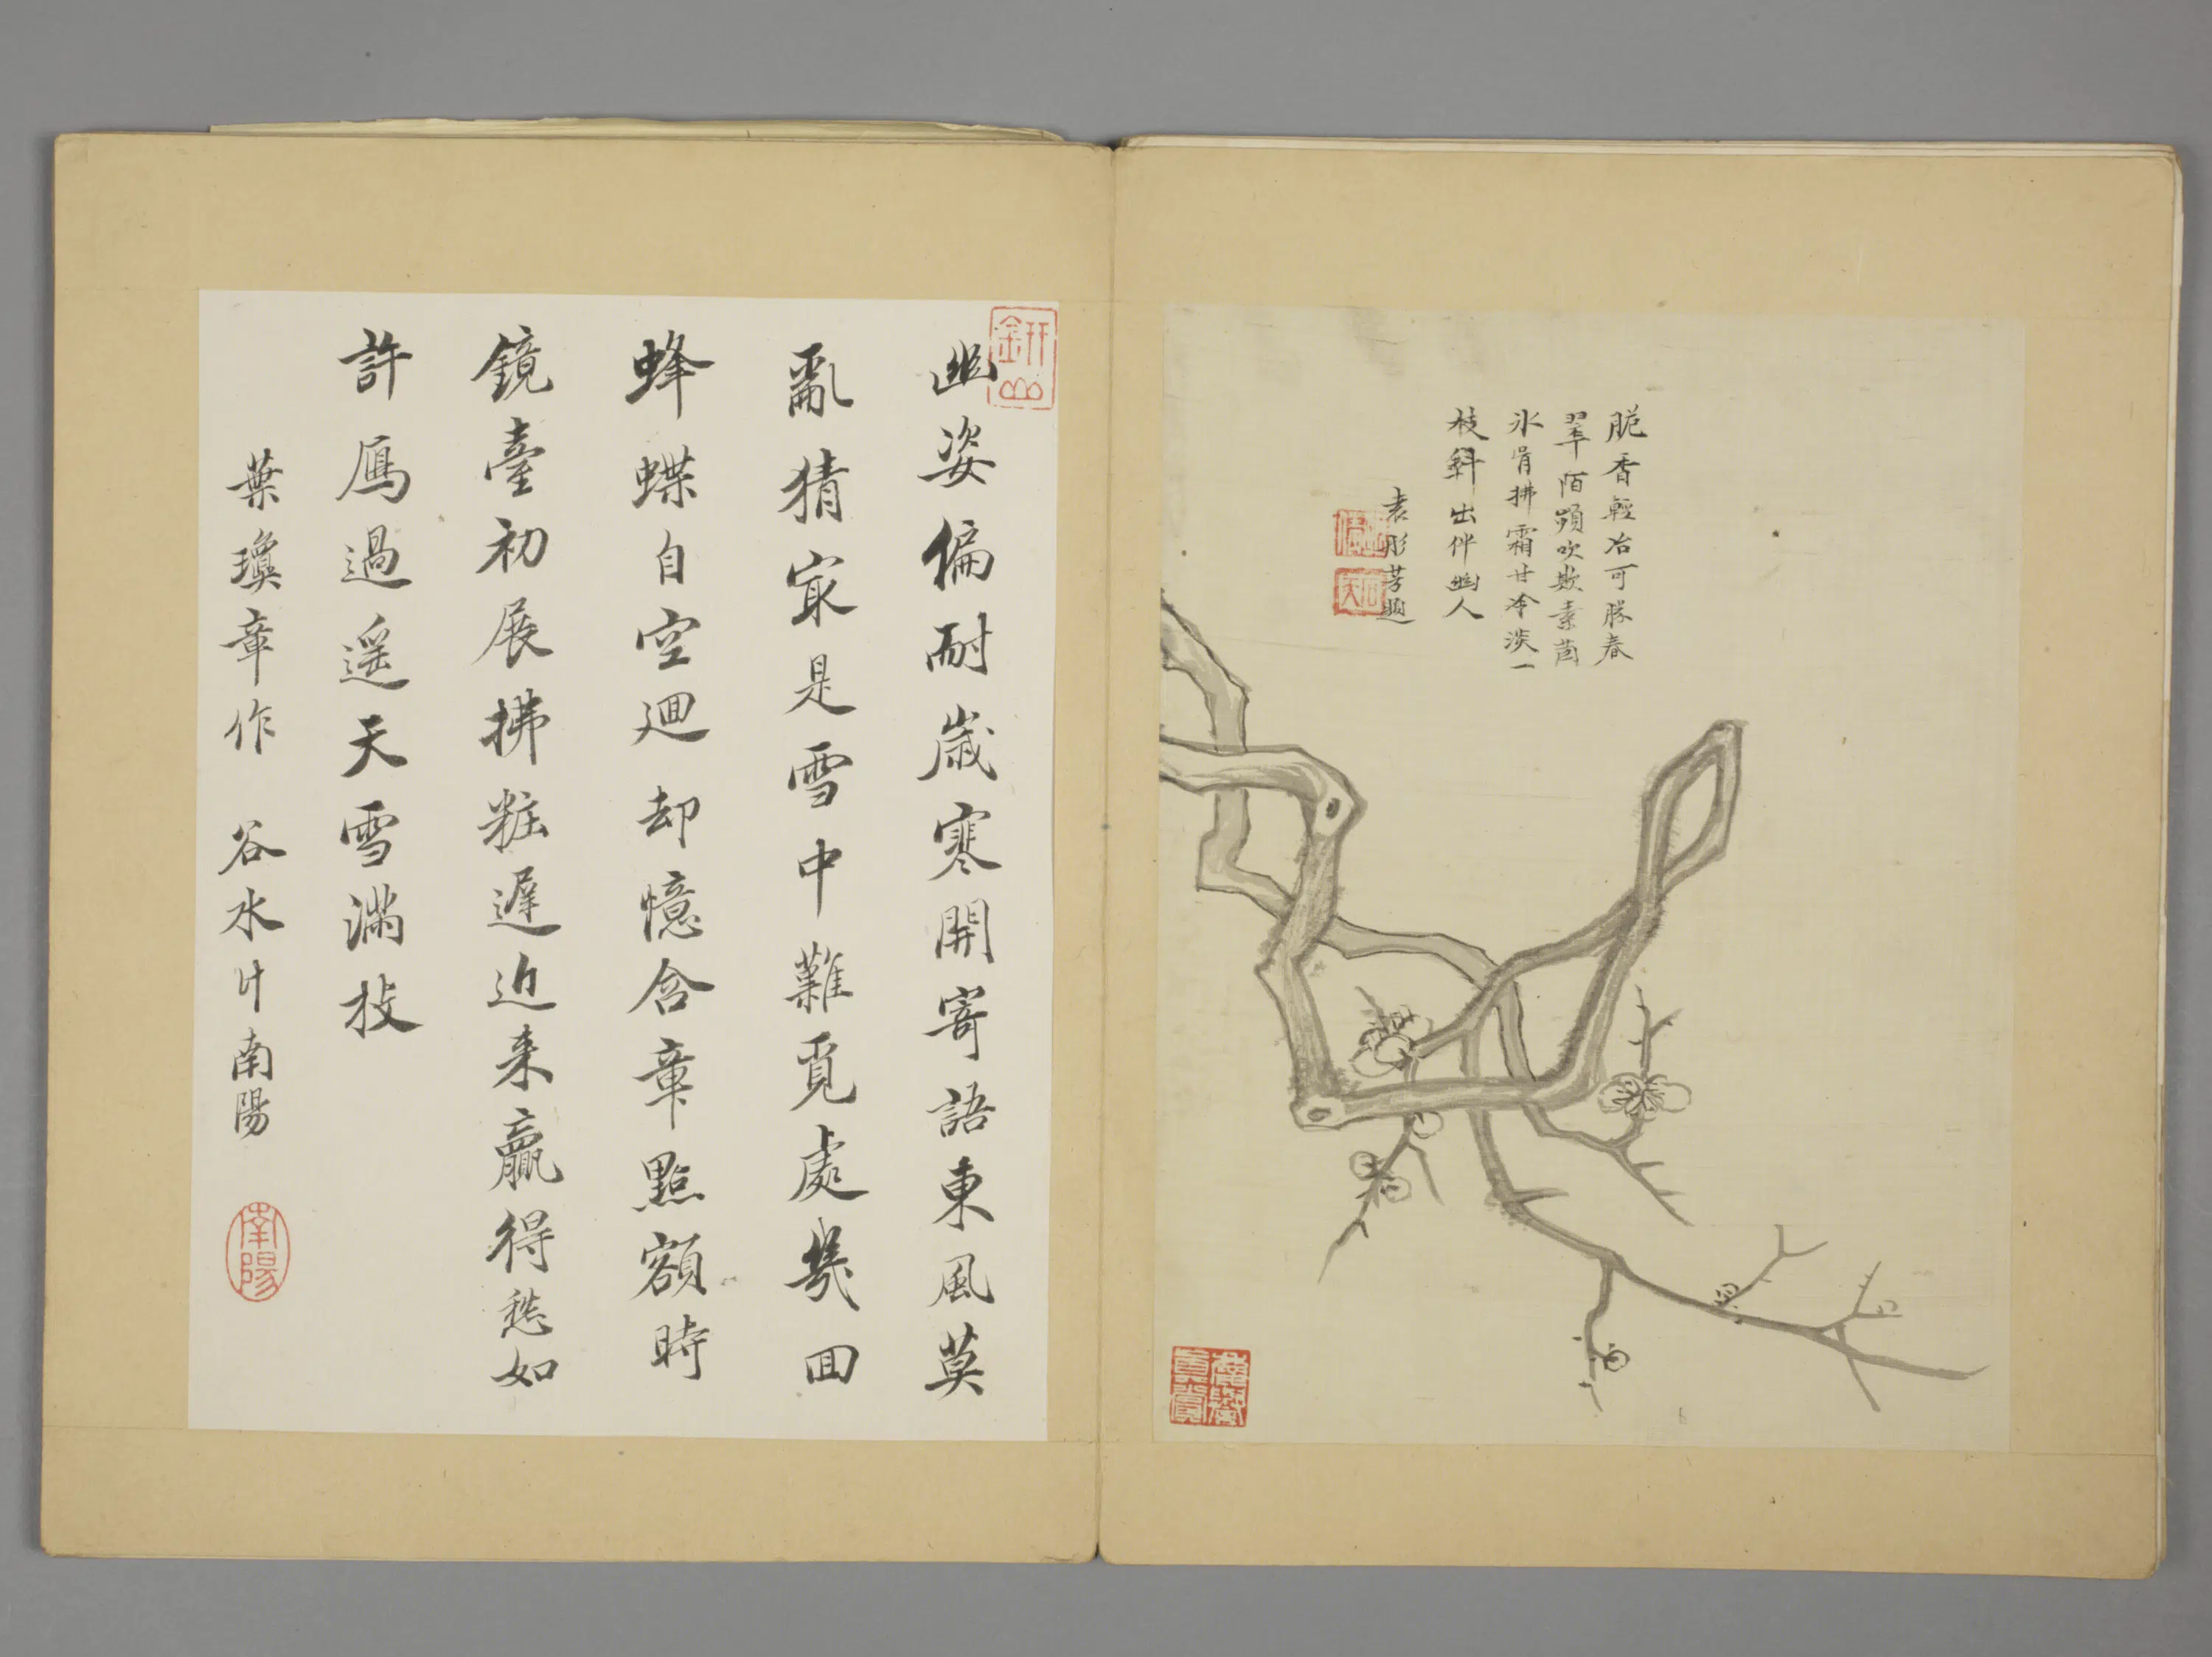 脆香輕冶可勝春
翠陌頻吹欺素茵
氷骨拂霜甘冷淡一
枝斜出伴幽人
袁彤芳題
幽姿偏耐歲寒開寄語東風莫
亂猜寂是雪中難覓處幾回
蜂蝶自空迴却憶含章點額時
鏡臺初展拂粧遲近来贏得愁如
許鴈過遥天雪滿枝
葉瓊章作 谷水 南陽
南陽